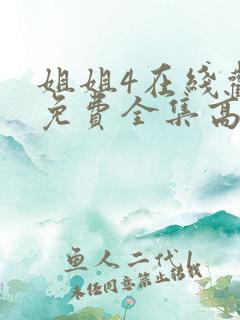 姐姐4在线
免费全集高
鱼人二代
未经同意禁止转载